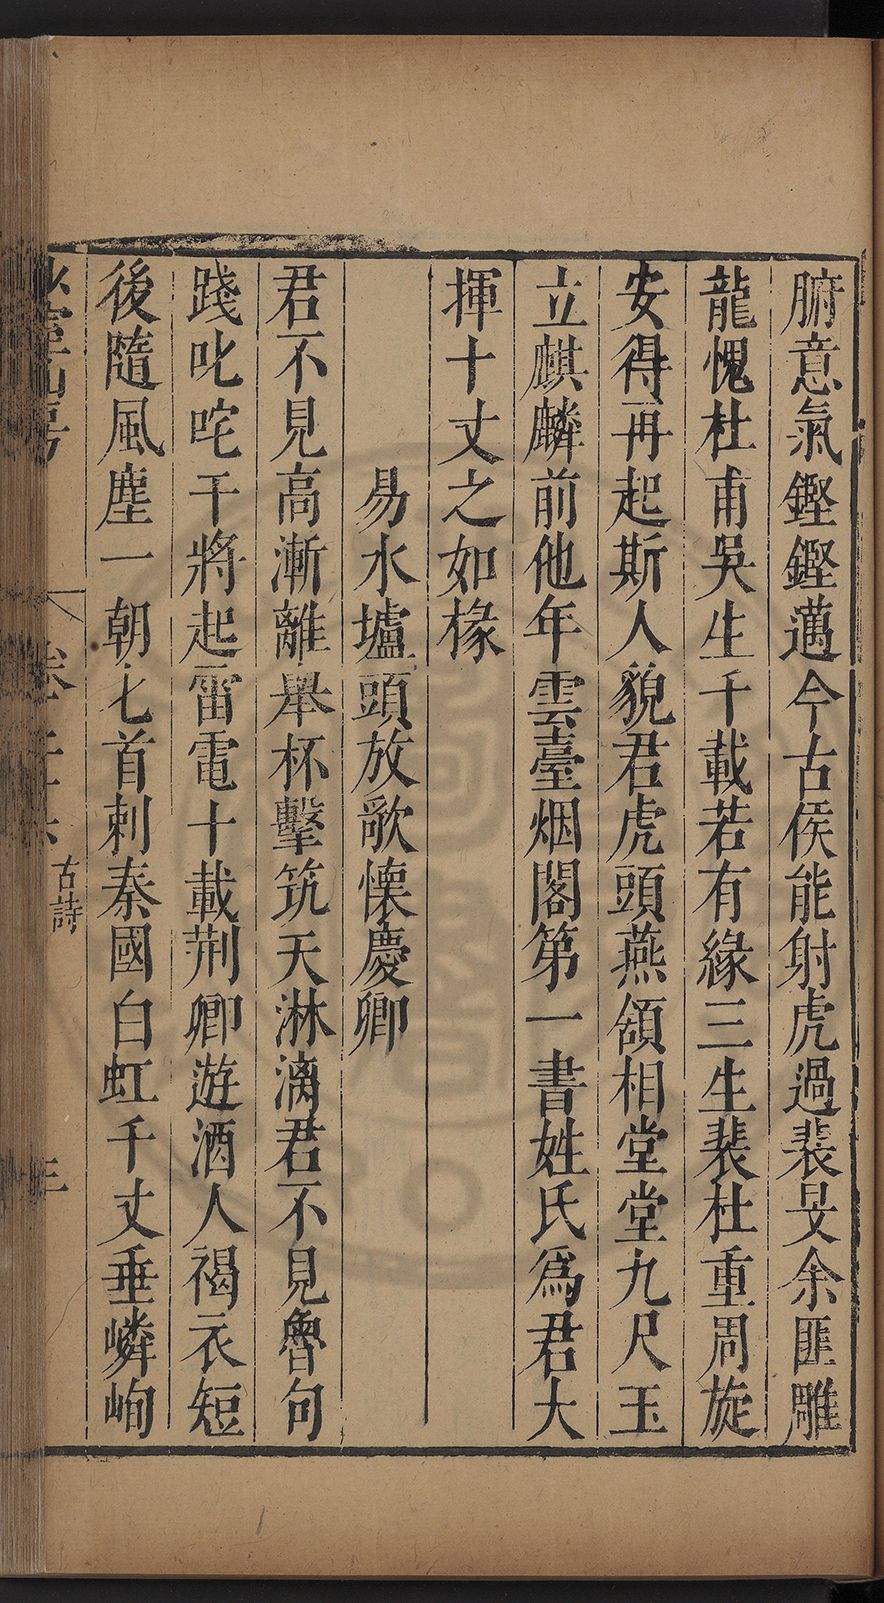 腑意氣鏗鏗邁今古侯能射虎過裴旻余匪雕
龍愧杜甫吳生千載若有緣三生裴杜重周旋
安得再起斯人貌君虎頭燕頷相堂堂九尺玉
立麒麟前他年雲臺烟閣第一書姓氏爲君大
揮十丈之如椽
易水壚頭放歌懷慶卿
君不見高漸離舉杯擊筑天淋漓君不見魯句
踐叱咤干將起雷電十載荆卿遊酒人褐衣短
後隨風塵一朝匕首刺秦國白虹千丈垂嶙峋
古詩
三